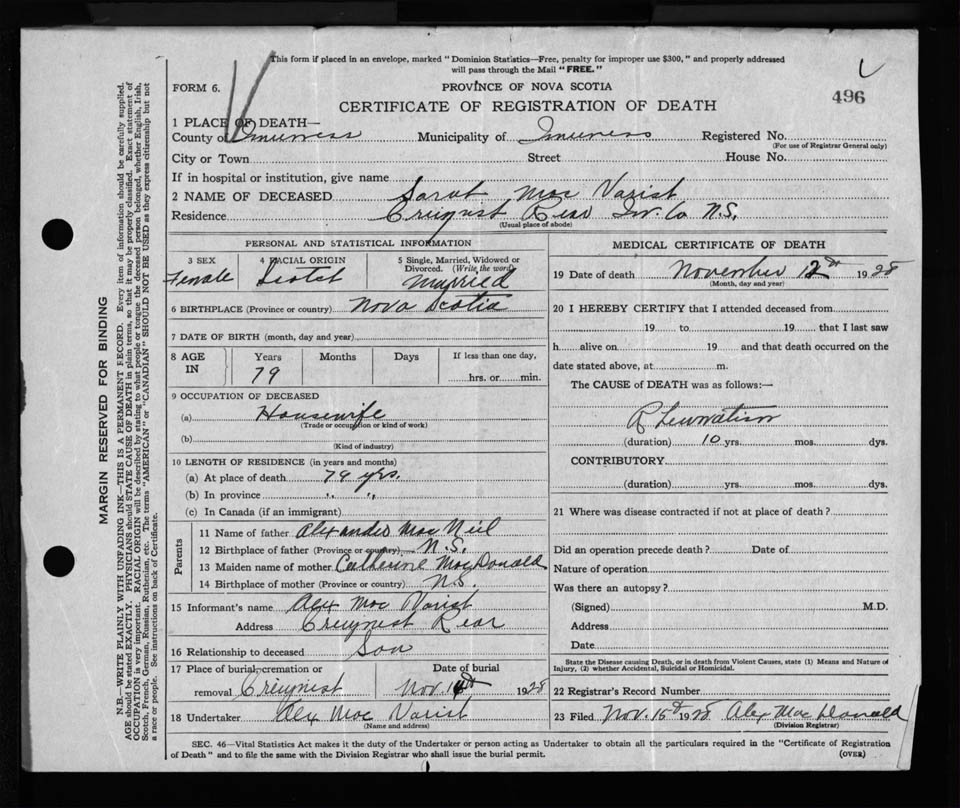 This form if placed in an envelope, marked "Dominion Statistics—Free, penalty for improper use $300," and properly addressed
will pass through the Mail "FREE."
FORM 6.
PROVINCE OF NOVA SCOTIA
496
CERTIFICATE OF REGISTRATION OF DEATH
1 PLACE OF DEATH—
County of Inverness Municipality of Inverness Registered No.
(For use of Registrar General only)
City or Town Street House No.
If in hospital or institution, give name
2 NAME OF DECEASED Sarah Mac Varish
Residence Creignish Rear Inv. Co N.S.
(Usual place of abode)
PERSONAL AND STATISTICAL INFORMATION
3 SEX 4 RACIAL ORIGIN 5 Single, Married, Widowed or
Divorced. (Write the word)
Female Scotch Married
6 BIRTHPLACE (Province or country) Nova Scotia
7 DATE OF BIRTH (month, day and year)
8 AGE IN Years Months Days If less than one day,
79 hrs. or min.
9 OCCUPATION OF DECEASED
(a) Housewife
(Trade or occupation or kind of work)
(b)
(Kind of industry)
10 LENGTH OF RESIDENCE (in years and months)
(a) At place of death 79 yrs.
(b) In province " "
(c) In Canada (if an immigrant)
Parents
11 Name of father Alexander Mac Neil
12 Birthplace of father (Province or country) N.S.
13 Maiden name of mother Catherine MacDonald
14 Birthplace of mother (Province or country) N.S.
15 Informant's name Alex Mac Varish
Address Creignish Rear
16 Relationship to deceased Son
17 Place of burial, cremation or Date of burial
removal Creignish Nov. 14th 1928
18 Undertaker Alex Mac Varish
(Name and address)
MEDICAL CERTIFICATE OF DEATH
19 Date of death November 12th 1928
(Month, day and year)
20 I HEREBY CERTIFY that I attended deceased from
19 to 19 that I last saw
h alive on 19 and that death occurred on the
date stated above, at m.
The CAUSE of DEATH was as follows:—
Rheumatism
(duration) 10 yrs. mos. dys.
CONTRIBUTORY
(duration) yrs. mos. dys.
21 Where was disease contracted if not at place of death?
Did an operation precede death? Date of
Nature of operation
Was there an autopsy?
(Signed) M.D.
Address
Date
State the Disease causing Death, or in death from Violent Causes, state (1) Means and Nature of
Injury, (2) whether Accidental, Suicidal or Homicidal.
22 Registrar's Record Number
23 Filed Nov. 15th 1928 Alex MacDonald
(Division Registrar)
SEC. 46—Vital Statistics Act makes it the duty of the Undertaker or person acting as Undertaker to obtain all the particulars required in the "Certificate of Registration
of Death" and to file the same with the Division Registrar who shall issue the burial permit.
(OVER)
MARGIN RESERVED FOR BINDING
N.B.—WRITE PLAINLY WITH UNFADING INK—THIS IS A PERMANENT RECORD. Every item of information should be carefully supplied.
AGE should be stated EXACTLY. PHYSICIANS should STATE CAUSE OF DEATH in plain terms, so that it may be properly classified. Exact statement of
OCCUPATION is very important. RACIAL ORIGIN will be described by stating to what people or tongue the deceased person belonged, whether English, Irish,
Scotch, French, German, Russian, Ruthenian, etc. The terms "AMERICAN" or "CANADIAN" SHOULD NOT BE USED as they express citizenship but not
a race or people. See instructions on back of Certificate.